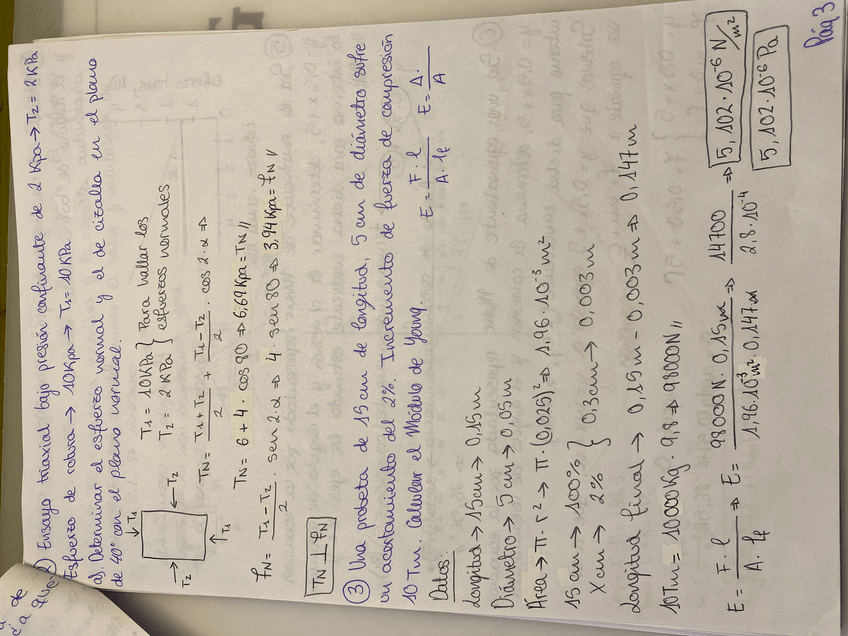 a
i'a de
que
② Ensayo triaxial bajo presión confinante de 2 KPa → T₂ = 2 KPa
Esfuerzo de rotura → 10 Kpa → T₁ = 10 KPa
a). Determinar el esfuerzo normal y el de cizalla en el plano
de 40° con el plano normal.
T₁ = 10 KPa } Para hallar los
T₂ = 2 KPa } esfuerzos normales
↓ T₁
← T₂
T₂ →
↑ T₁
TN = T₁ + T₂ / 2 + T₁ - T₂ / 2 · cos 2·α ⇒
TN = 6 + 4 · cos 80 ⇒ 6,69 Kpa = TN //
fN = T₁ - T₂ / 2 · sen 2·α ⇒ 4 · sen 80 ⇒ 3,94 Kpa = fN //
TN ⊥ fN
③ Una probeta de 15 cm de longitud, 5 cm de diámetro sufre
un acortamiento del 2%. Incremento de fuerza de compresión
10 Tm. Calcular el Módulo de Young.
Datos:
Longitud → 15 cm → 0,15 m
E = F · l / A · lf
E = Δ · / A
Diámetro → 5 cm → 0,05 m
Área → π · r² → π · (0,025)² ⇒ 1,96 · 10⁻³ m²
15 cm → 100% }
X cm → 2% } 0,3 cm → 0,003 m
Longitud final → 0,15 m - 0,003 m ⇒ 0,147 m
10 Tm = 10000 Kg · 9,8 ⇒ 98000 N //
E = F · l / A · lf ⇒ E = 98000 N · 0,15 m / 1,96 · 10⁻³ m² · 0,147 m ⇒ 14700 / 2,8 · 10⁻⁴ ⇒ 5,102 · 10⁻⁶ N/m²
5,102 · 10⁻⁶ Pa
Pág 3